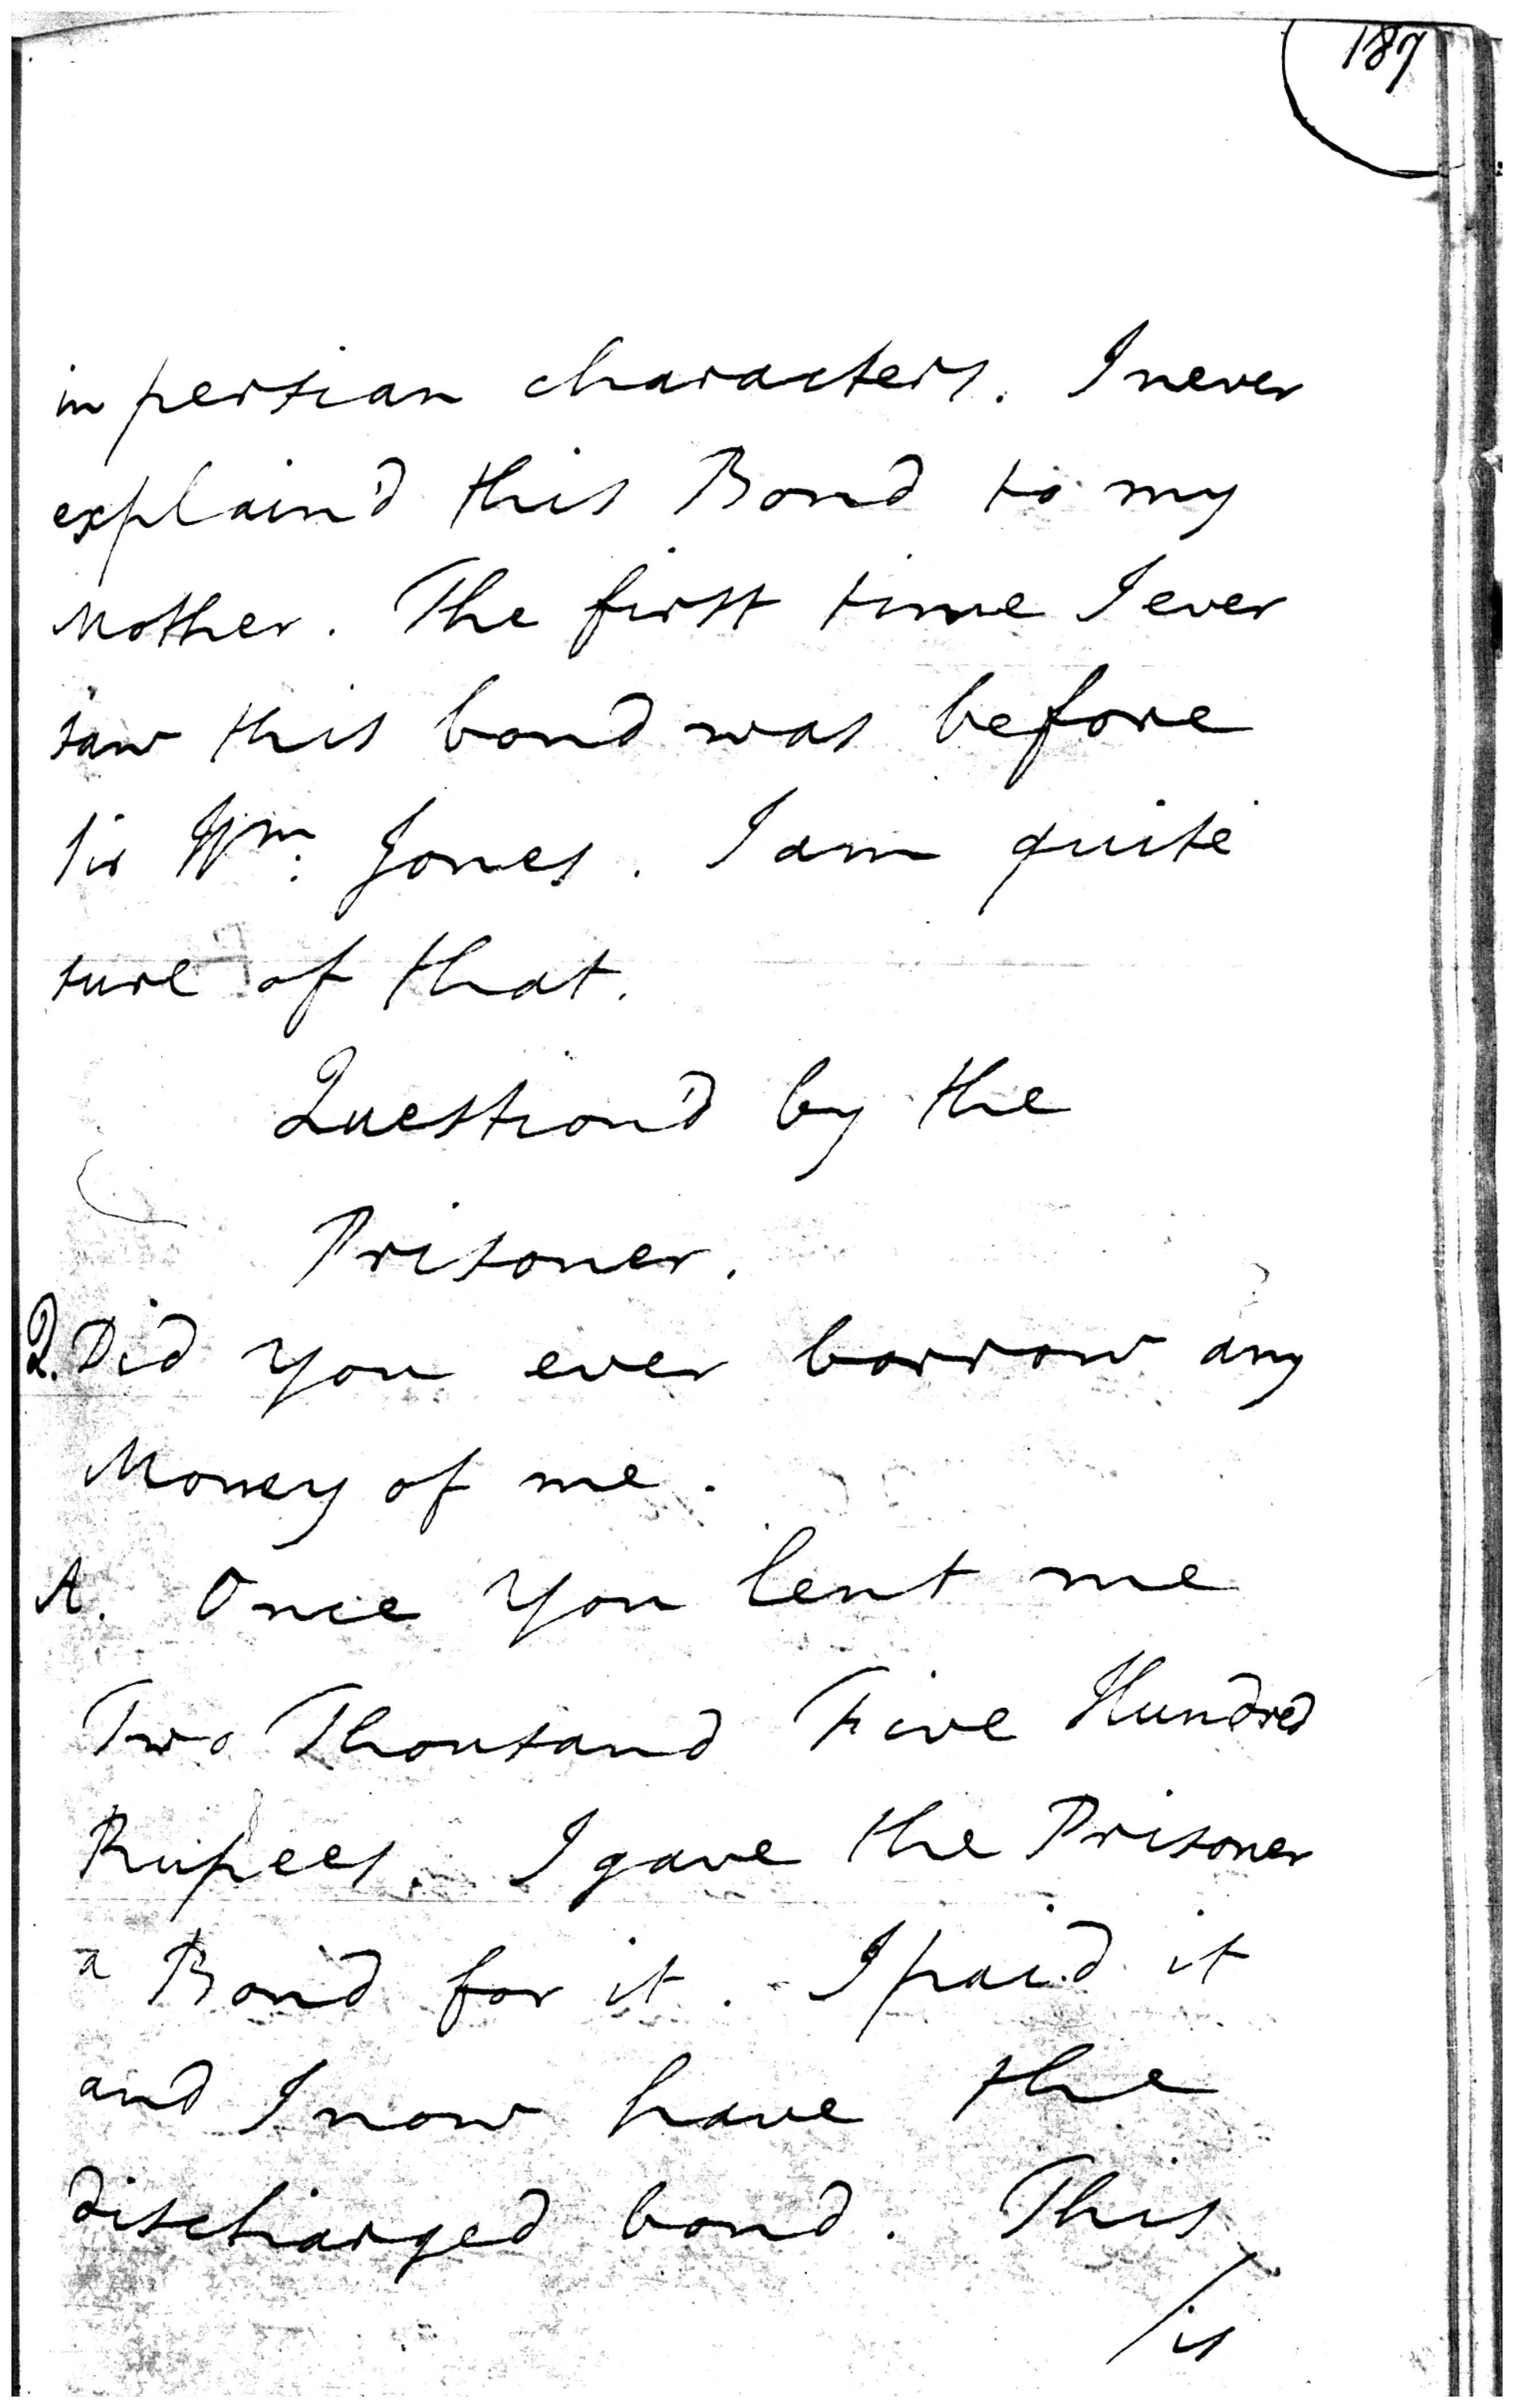 187
in persian characters. I never
explain'd this Bond to my
Mother. The first time I ever
saw this bond was before
Sir Wm: Jones. I am quite
sure of that.
Question'd by the
Prisoner.
Q. Did you ever borrow any
Money of me.
A. Once you lent me
Two Thousand Five Hundred
Rupees. I gave the Prisoner
a Bond for it. I paid it
and I now have the
discharged bond. This
/is